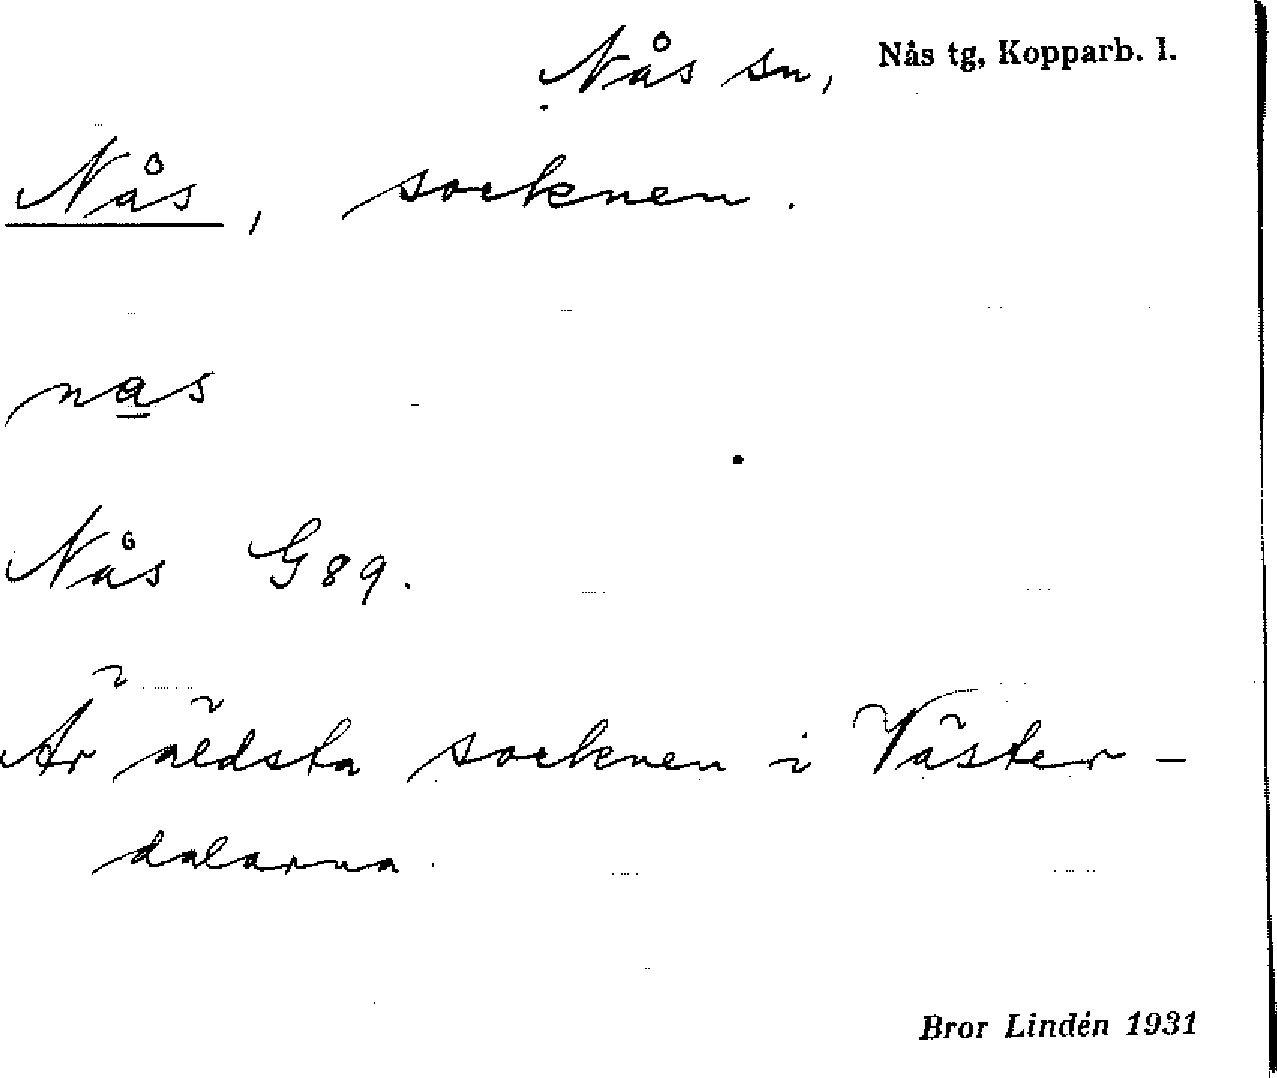 Nås sn, Nås tg, Kopparb. l.
Nås, socknen.
nas
Nås G 89.
Är äldsta socknen i Väster-
dalarna
Bror Lindén 1931